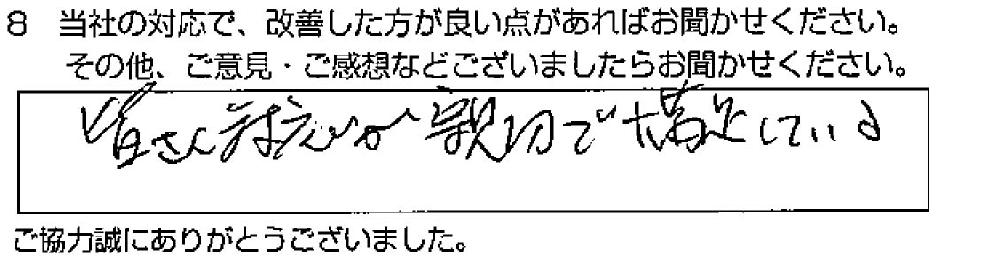 8 当社の対応で、改善した方が良い点があればお聞かせください。
その他、ご意見・ご感想などございましたらお聞かせください。
皆さん対応が親切で満足している
ご協力誠にありがとうございました。